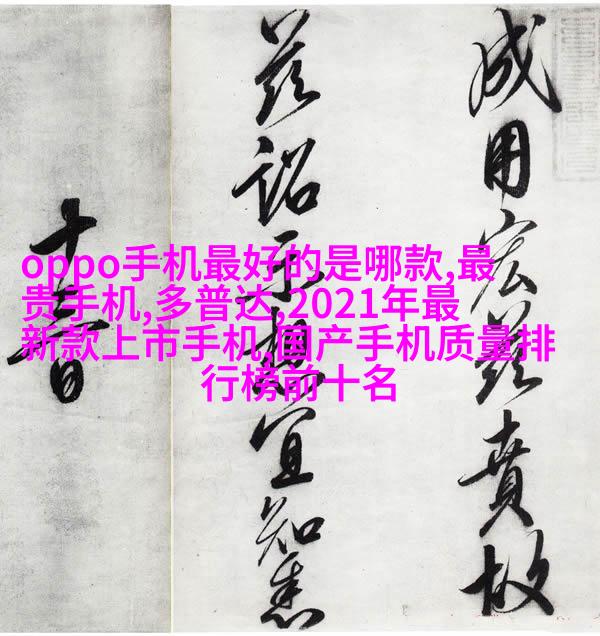 成用宏兹賁故
兹詔示想宜知悉
十日
oppo手机最好的是哪款,最
贵手机,多普达,2021年最
新款上市手机,国产手机质量排
行榜前十名